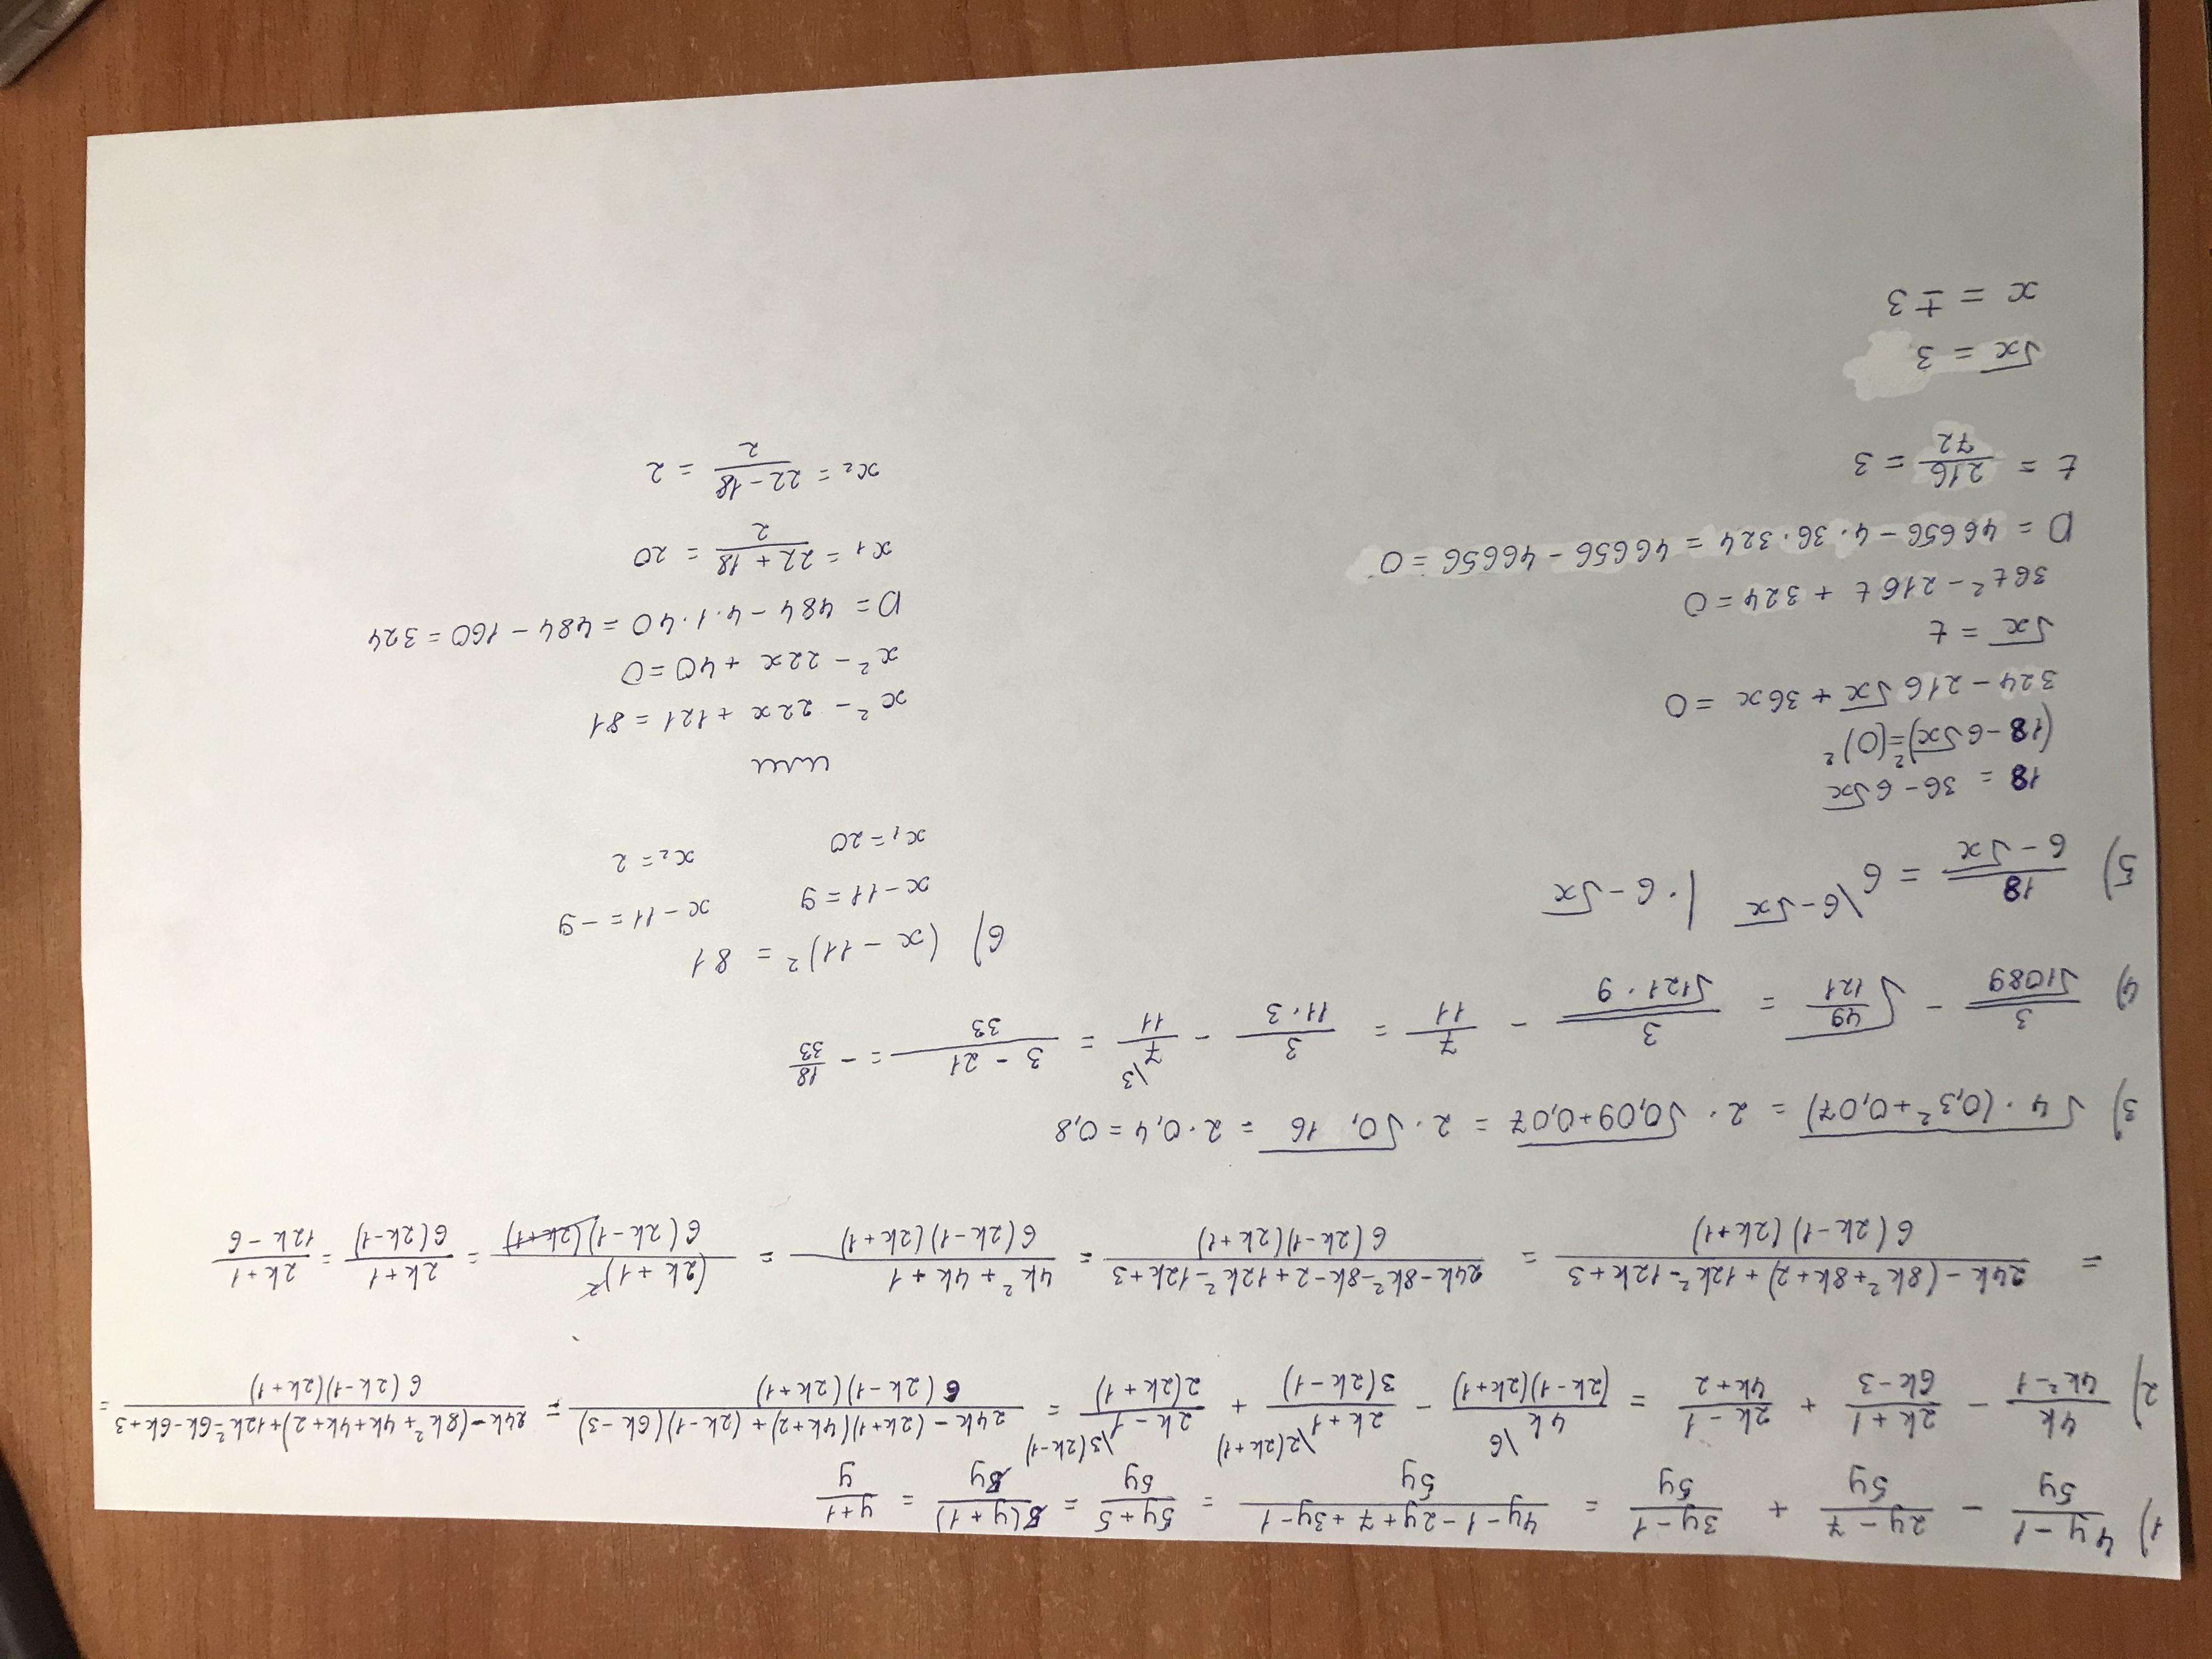 1) (4y-1)/(5y) - (2y-7)/(5y) + (3y-1)/(5y) = (4y-1-2y+7+3y-1)/(5y) = (5y+5)/(5y) = (5(y+1))/(5y) = (y+1)/y
2) (4k)/(4k²-1) - (2k+1)/(6k-3) + (2k-1)/(4k+2) = (4k)/((2k-1)(2k+1)) \6 - (2k+1)/(3(2k-1)) \2(2k+1) + (2k-1)/(2(2k+1)) \3(2k-1) = (24k-(2k+1)(4k+2)+(2k-1)(6k-3))/(6(2k-1)(2k+1)) = (24k-(8k²+4k+4k+2)+12k²-6k-6k+3)/(6(2k-1)(2k+1)) =
= (24k-(8k²+8k+2)+12k²-12k+3)/(6(2k-1)(2k+1)) = (24k-8k²-8k-2+12k²-12k+3)/(6(2k-1)(2k+1)) = (4k²+4k+1)/(6(2k-1)(2k+1)) = (2k+1)²/(6(2k-1)(2k+1)) = (2k+1)/(6(2k-1)) = (2k+1)/(12k-6)
3) √(4·(0,3²+0,07)) = 2·√(0,09+0,07) = 2·√(0,16) = 2·0,4=0,8
4) 3/√1089 - √(49/121) = 3/√(121·9) - 7/11 = 3/(11·3) - 7/11 \3 = (3-21)/33 = - 18/33
5) 18/(6-√x) = 6 \6-√x |·6-√x
18 = 36-6√x
(18-6√x)²=(0)²
324-216√x+36x=0
√x = t
36t²-216t+324=0
D = 46656-4·36·324=46656-46656=0
t = 216/72 = 3
√x = 3
x = ±3
6) (x-11)² = 81
x-11=9 x-11=-9
x₁=20 x₂=2
или
x²-22x+121=81
x²-22x+40=0
D=484-4·1·40=484-160=324
x₁=(22+18)/2=20
x₂=(22-18)/2=2